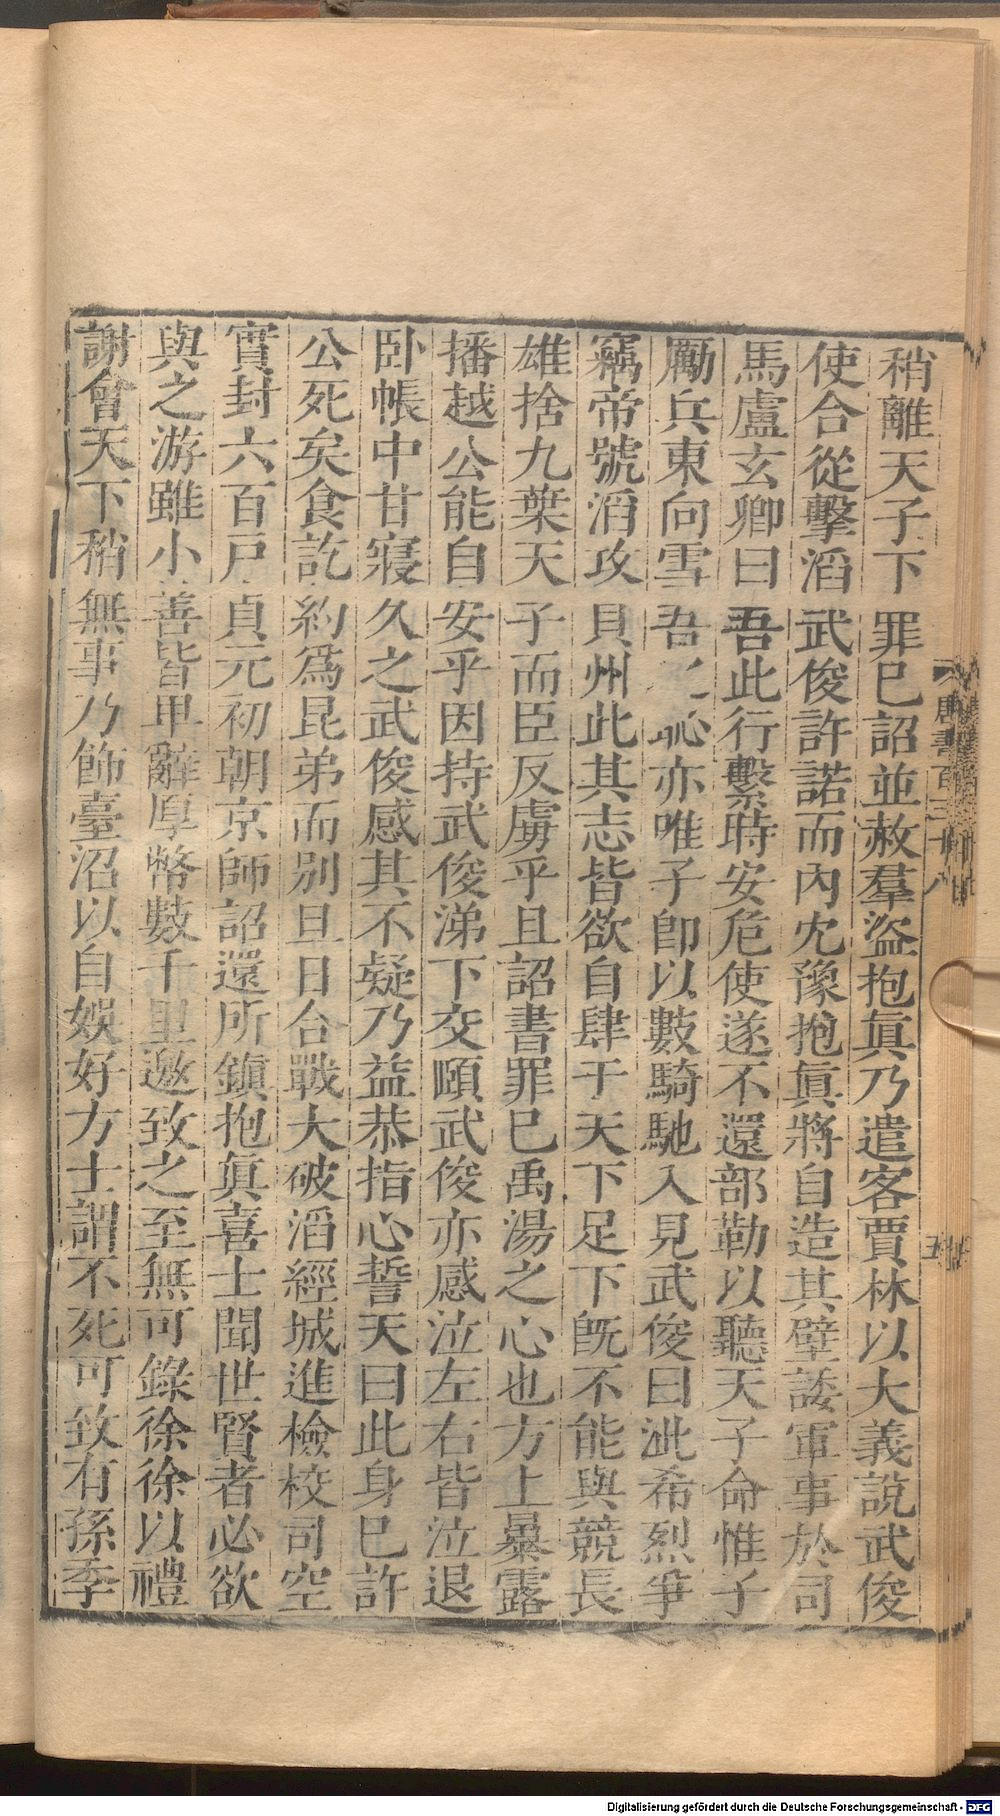 稍離天子下罪巳詔並赦羣盜抱眞乃遣客賈林以大義說武俊
使合從擊滔武俊許諾而內冘豫抱眞將自造其壁諉軍事於司
馬盧玄卿曰吾此行繫時安危使遂不還部勒以聽天子命惟子
勵兵東向雪吾恥亦唯子卽以數騎馳入見武俊曰泚希烈爭
竊帝號滔攻貝州此其志皆欲自肆于天下足下旣不能與競長
雄捨九葉天子而臣反虜乎且詔書罪巳禹湯之心也方上暴露
播越公能自安乎因持武俊涕下交頤武俊亦感泣左右皆泣退
卧帳中甘寢久之武俊感其不疑乃益恭指心誓天曰此身巳許
公死矣食訖約爲昆弟而別旦日合戰大破滔經城進檢校司空
實封六百戸貞元初朝京師詔還所鎭抱眞喜士聞世賢者必欲
與之游雖小善皆甲辭厚幣數千里邀致之至無可錄徐徐以禮
謝會天下稍無事乃飾臺沼以自娛好方士謂不死可致有孫季
唐書百三十八
五
Digitalisierung gefördert durch die Deutsche Forschungsgemeinschaft - DFG